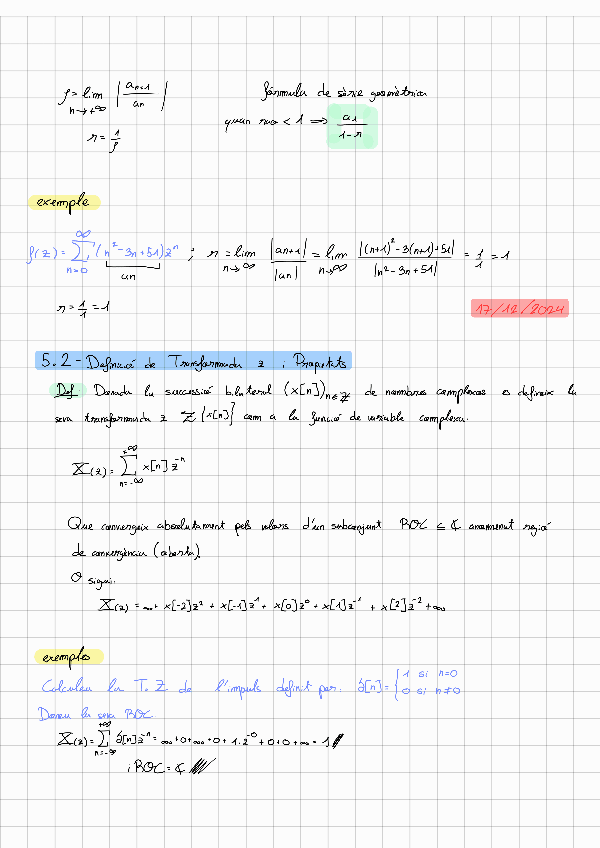 ρ = lim n→+∞ | an+1 / an |
fórmula de sèrie geomètrica
r = 1/ρ
quan rao < 1 ⟹ a1 / 1-r
exemple
f(z) = ∑ n=0 ∞ (n² - 3n + 51) zⁿ ; r = lim n→∞ |an+1| / |an| = lim n→∞ |(n+1)² - 3(n+1) + 51| / |n² - 3n + 51| = 1/1 = 1
an
r = 1/1 = 1
17/12/2024
5.2 - Definició de Transformada z i Propietats
Def: Donada la successió bilateral (x[n]) n∈ℤ de nombres complexos es defineix la
seva transformada z Z{x[n]} com a la funció de variable complexa.
X(z) = ∑ n=-∞ +∞ x[n] z⁻ⁿ
Que convergeix absolutament pels valors d'un subconjunt ROC ⊆ ℂ anomenat regió
de convergència (oberta).
O sigui.
X(z) = ...+ x[-2]z² + x[-1]z¹ + x[0]z⁰ + x[1]z⁻¹ + x[2]z⁻² + ...
exemples
Calculeu la T.Z de l'impuls definit per. δ[n] = { 1 si n=0
0 si n≠0
Doneu la seva ROC.
X(z) = ∑ n=-∞ +∞ δ[n] z⁻ⁿ = ...+0+...+0+1·z⁻⁰+0+0+... = 1
i ROC = ℂ